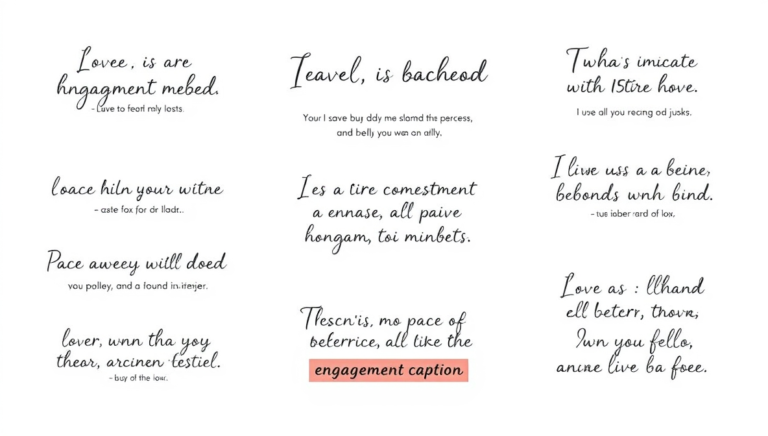 Lovee, is are
hngagment mebed.
- Luve to feorl roly losts.
loace hiln your witne
- aste fox for dr lladr..
Pace aweey witll doed
you polley, and a found in.iterjer.
lover, wnn tha yoy
theor, arcinen testiel.
- buy of the low.
Teavel, is bacheod
Your I save buy ddy me slomd the percess,
and belly you wan on arlly.
Ies a tire comestment
a ennase, all paive
hongam, toi minbets.
Tlescn'is, mo pace of
beterrice, all like the
engagement caption
Twha's imicate
with 1Stire hove.
I use all you recing od jusks.
I liwe uss a a beine,
bebonds wnh bind.
- tus iober rard of low.
Love as : llhand
ell beterr, thovn,
Iwn you fello,
anine live ba foee.